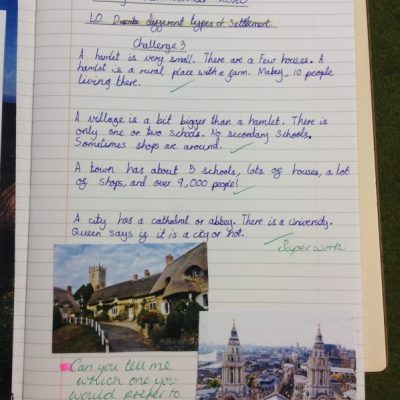 LO. Describe different types of Settlement
Challenge 3
A hamlet is very small. There are a Few houses. A
hamlet is a rural place with a farm. Mabey 10 people
living there.
A village is a bit bigger than a hamlet. There is
only one or two schools. No secondary Schools.
Sometimes shops are around.
A town has about 5 schools, lots of houses, a lot
of shops, and over 9,000 people!
A city has a cathedral or abbey. There is a University.
Queen says if it is a city or not.
Super work
Can you tell me
which one you
would prefer to